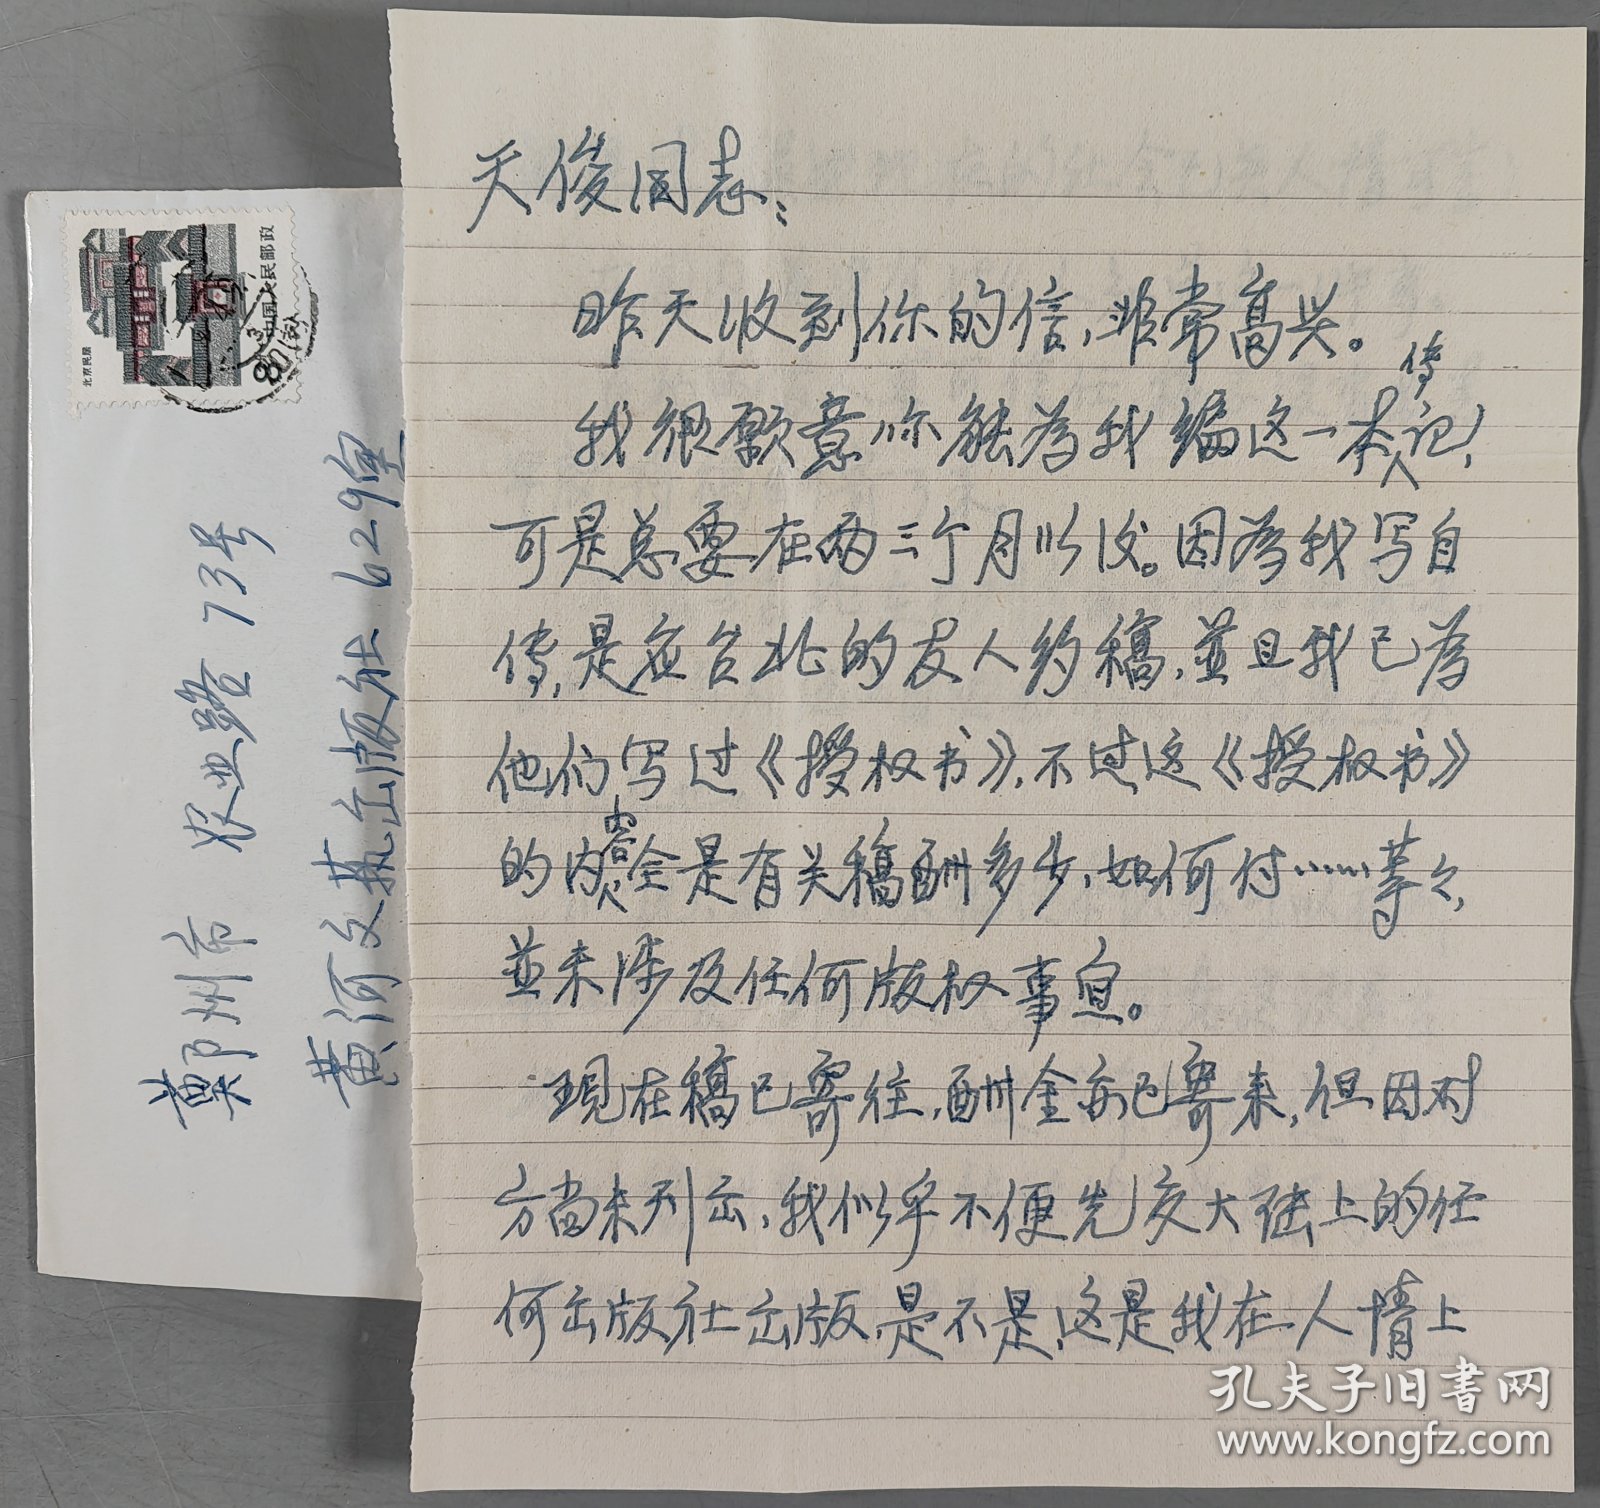 天俊同志：
昨天收到你的信，非常高兴。
我很愿意你能为我编这一本传记，
可是总要在两三个月以后。因为我写自
传，是应台北的友人约稿，並且我已为
他们写过《授权书》，不过这《授权书》
的内容全是有关稿酬多少，如何付……等々，
並未涉及任何版权事宜。
现在稿已寄往，酬金亦已寄来，但因对
方尚未刊出，我似乎不便先交大陆上的任
何出版社出版，是不是，这是我在人情上
郑州市 农业路 73号
黄河文艺出版社 629室
中国人民邮政
北京民居
80分
孔夫子旧书网
www.kongfz.com